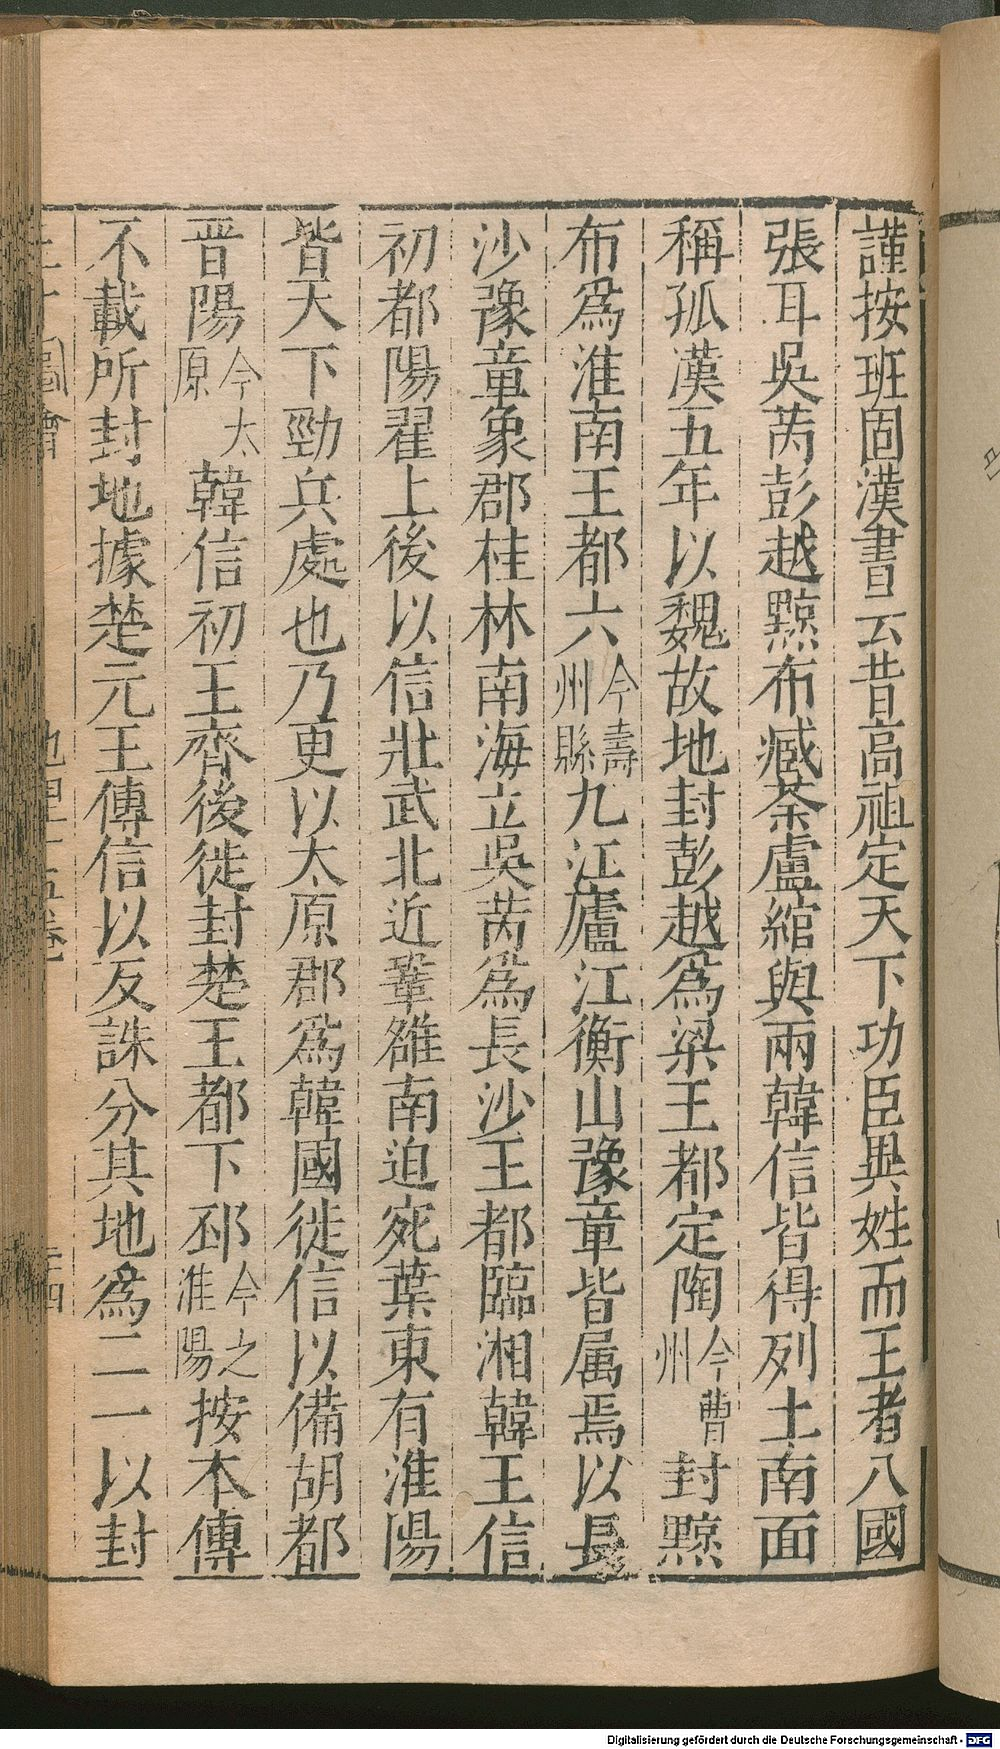 謹按班固漢書云昔高祖定天下功臣異姓而王者八國
張耳吳芮彭越黥布臧荼盧綰與兩韓信皆得列土南面
稱孤漢五年以魏故地封彭越爲梁王都定陶今曹州封黥
布爲淮南王都六今壽州縣九江廬江衡山豫章皆属焉以長
沙豫童象郡桂林南海立吳芮爲長沙王都臨湘韓王信
初都陽翟上後以信壯武北近鞏雒南迫宛葉東有淮陽
皆天下勁兵處也乃更以太原郡爲韓國徙信以備胡都
晋陽今太原韓信初王齊後徙封楚王都下邳今之淮陽按本傳
不載所封地據楚元王傳信以反誅分其地爲二一以封
圖會
地理十五卷
Digitalisierung gefördert durch die Deutsche Forschungsgemeinschaft - DFG